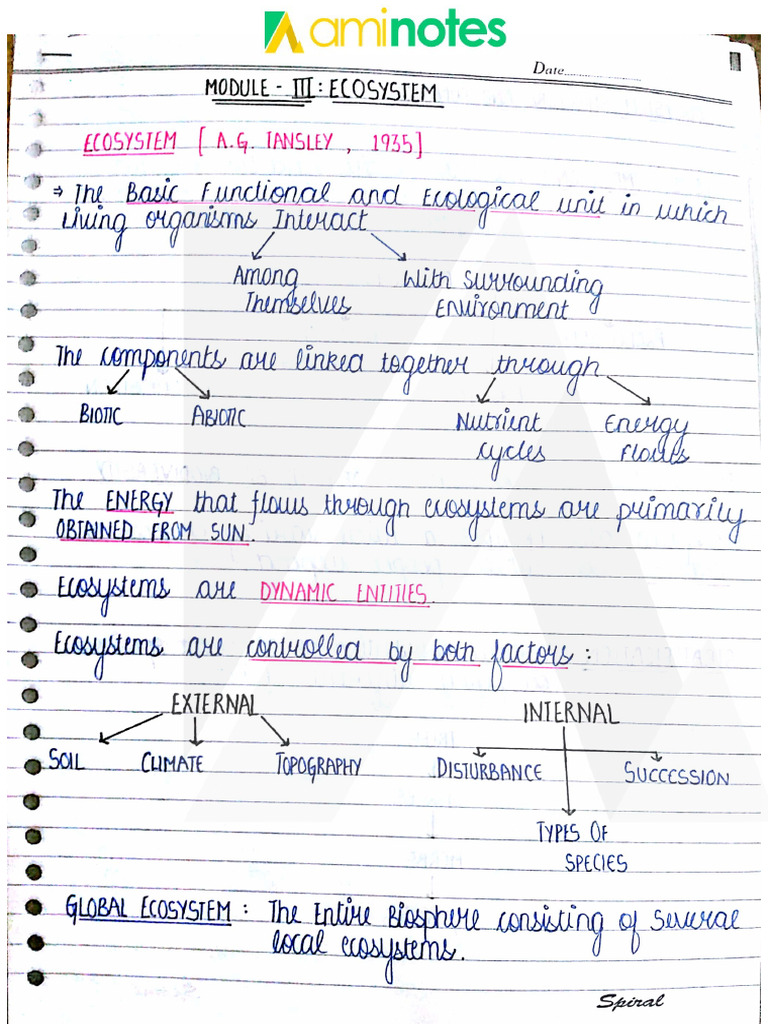 aminotes
Date
MODULE - III : ECOSYSTEM
ECOSYSTEM [ A.G. TANSLEY , 1935]
⇒ The Basic Functional and Ecological unit in which
living organisms Interact
Among With Surrounding
Themselves Environment
The components are linked together through
BIOTIC ABIOTIC Nutrient Energy
cycles Flows
The ENERGY that flows through ecosystems are primarily
OBTAINED FROM SUN.
Ecosystems are DYNAMIC ENTITIES.
Ecosystems are controlled by both factors :
EXTERNAL INTERNAL
SOIL CLIMATE TOPOGRAPHY DISTURBANCE SUCCESSION
TYPES OF
SPECIES
GLOBAL ECOSYSTEM : The Entire Biosphere consisting of several
local ecosystems.
Spiral